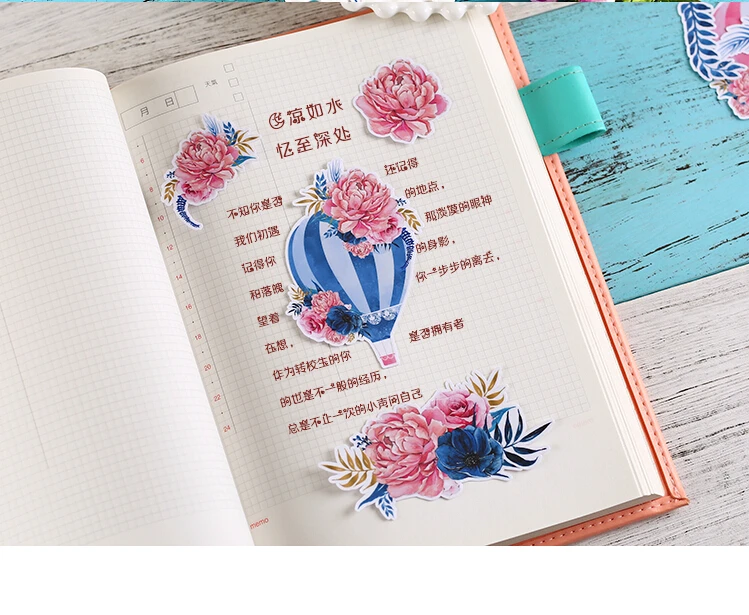 月 日
天氣
凉如水
忆至深处
不知你是否 还记得
我们初遇 的地点，
记得你 那淡漠的眼神
和落魄 的身影，
望着 你一步步的离去，
在想，
作为转校生的你 是否拥有者
的也是不一般的经历，
总是不止一次的小声问自己
6
8
10
12
14
16
18
20
22
24
memo